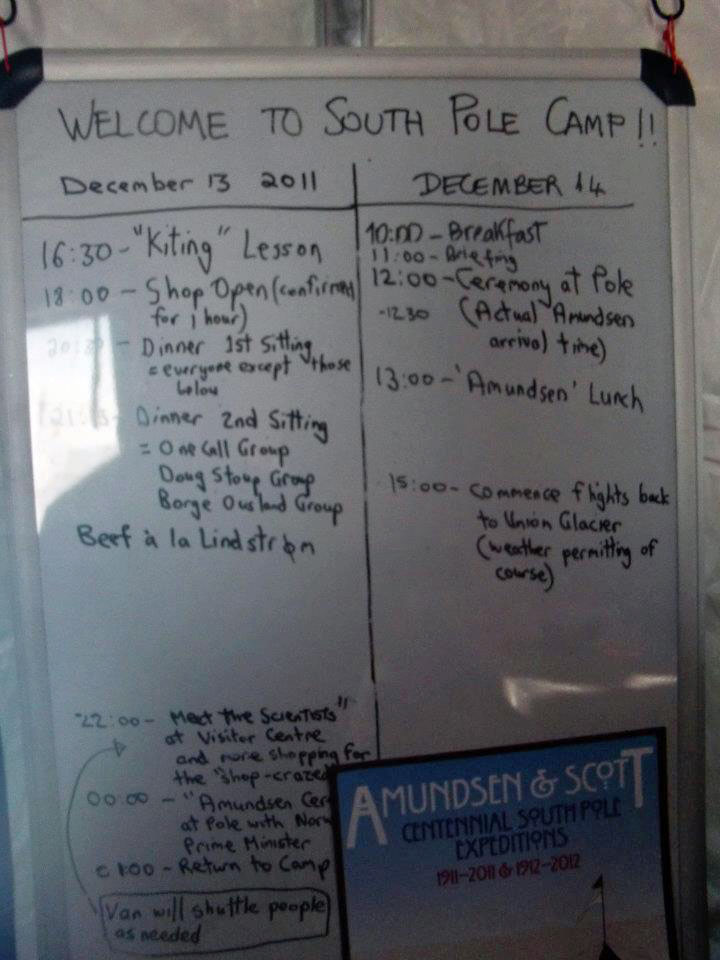 WELCOME TO SOUTH POLE CAMP!!
December 13 2011
16:30 - "Kiting" Lesson
18:00 - Shop Open (confirmed
for 1 hour)
- Dinner 1st Sitting
= everyone except those
below
- Dinner 2nd Sitting
= One Call Group
Doug Stoup Group
Borge Ousland Group
Beef à la Lindstrøm
22:00 - "Meet the Scientists"
at Visitor Centre
and more shopping for
the "shop-crazed"
00:00 - "Amundsen Cer
at Pole with Norw
Prime Minister
01:00 - Return to Camp
Van will shuttle people
as needed
DECEMBER 14
10:00 - Breakfast
11:00 - Briefing
12:00 - Ceremony at Pole
-12.30 (Actual Amundsen
arrival time)
13:00 - 'Amundsen' Lunch
15:00 - Commence flights back
to Union Glacier
(weather permitting of
course)
AMUNDSEN & SCOTT
CENTENNIAL SOUTH POLE
EXPEDITIONS
1911-2011 & 1912-2012